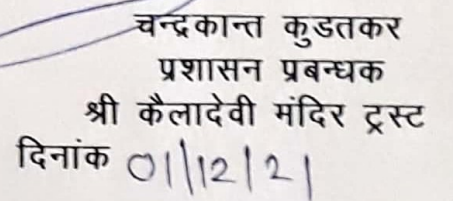 चन्द्रकान्त कुडतकर
प्रशासन प्रबन्धक
श्री कैलादेवी मंदिर ट्रस्ट
दिनांक 01/12/21